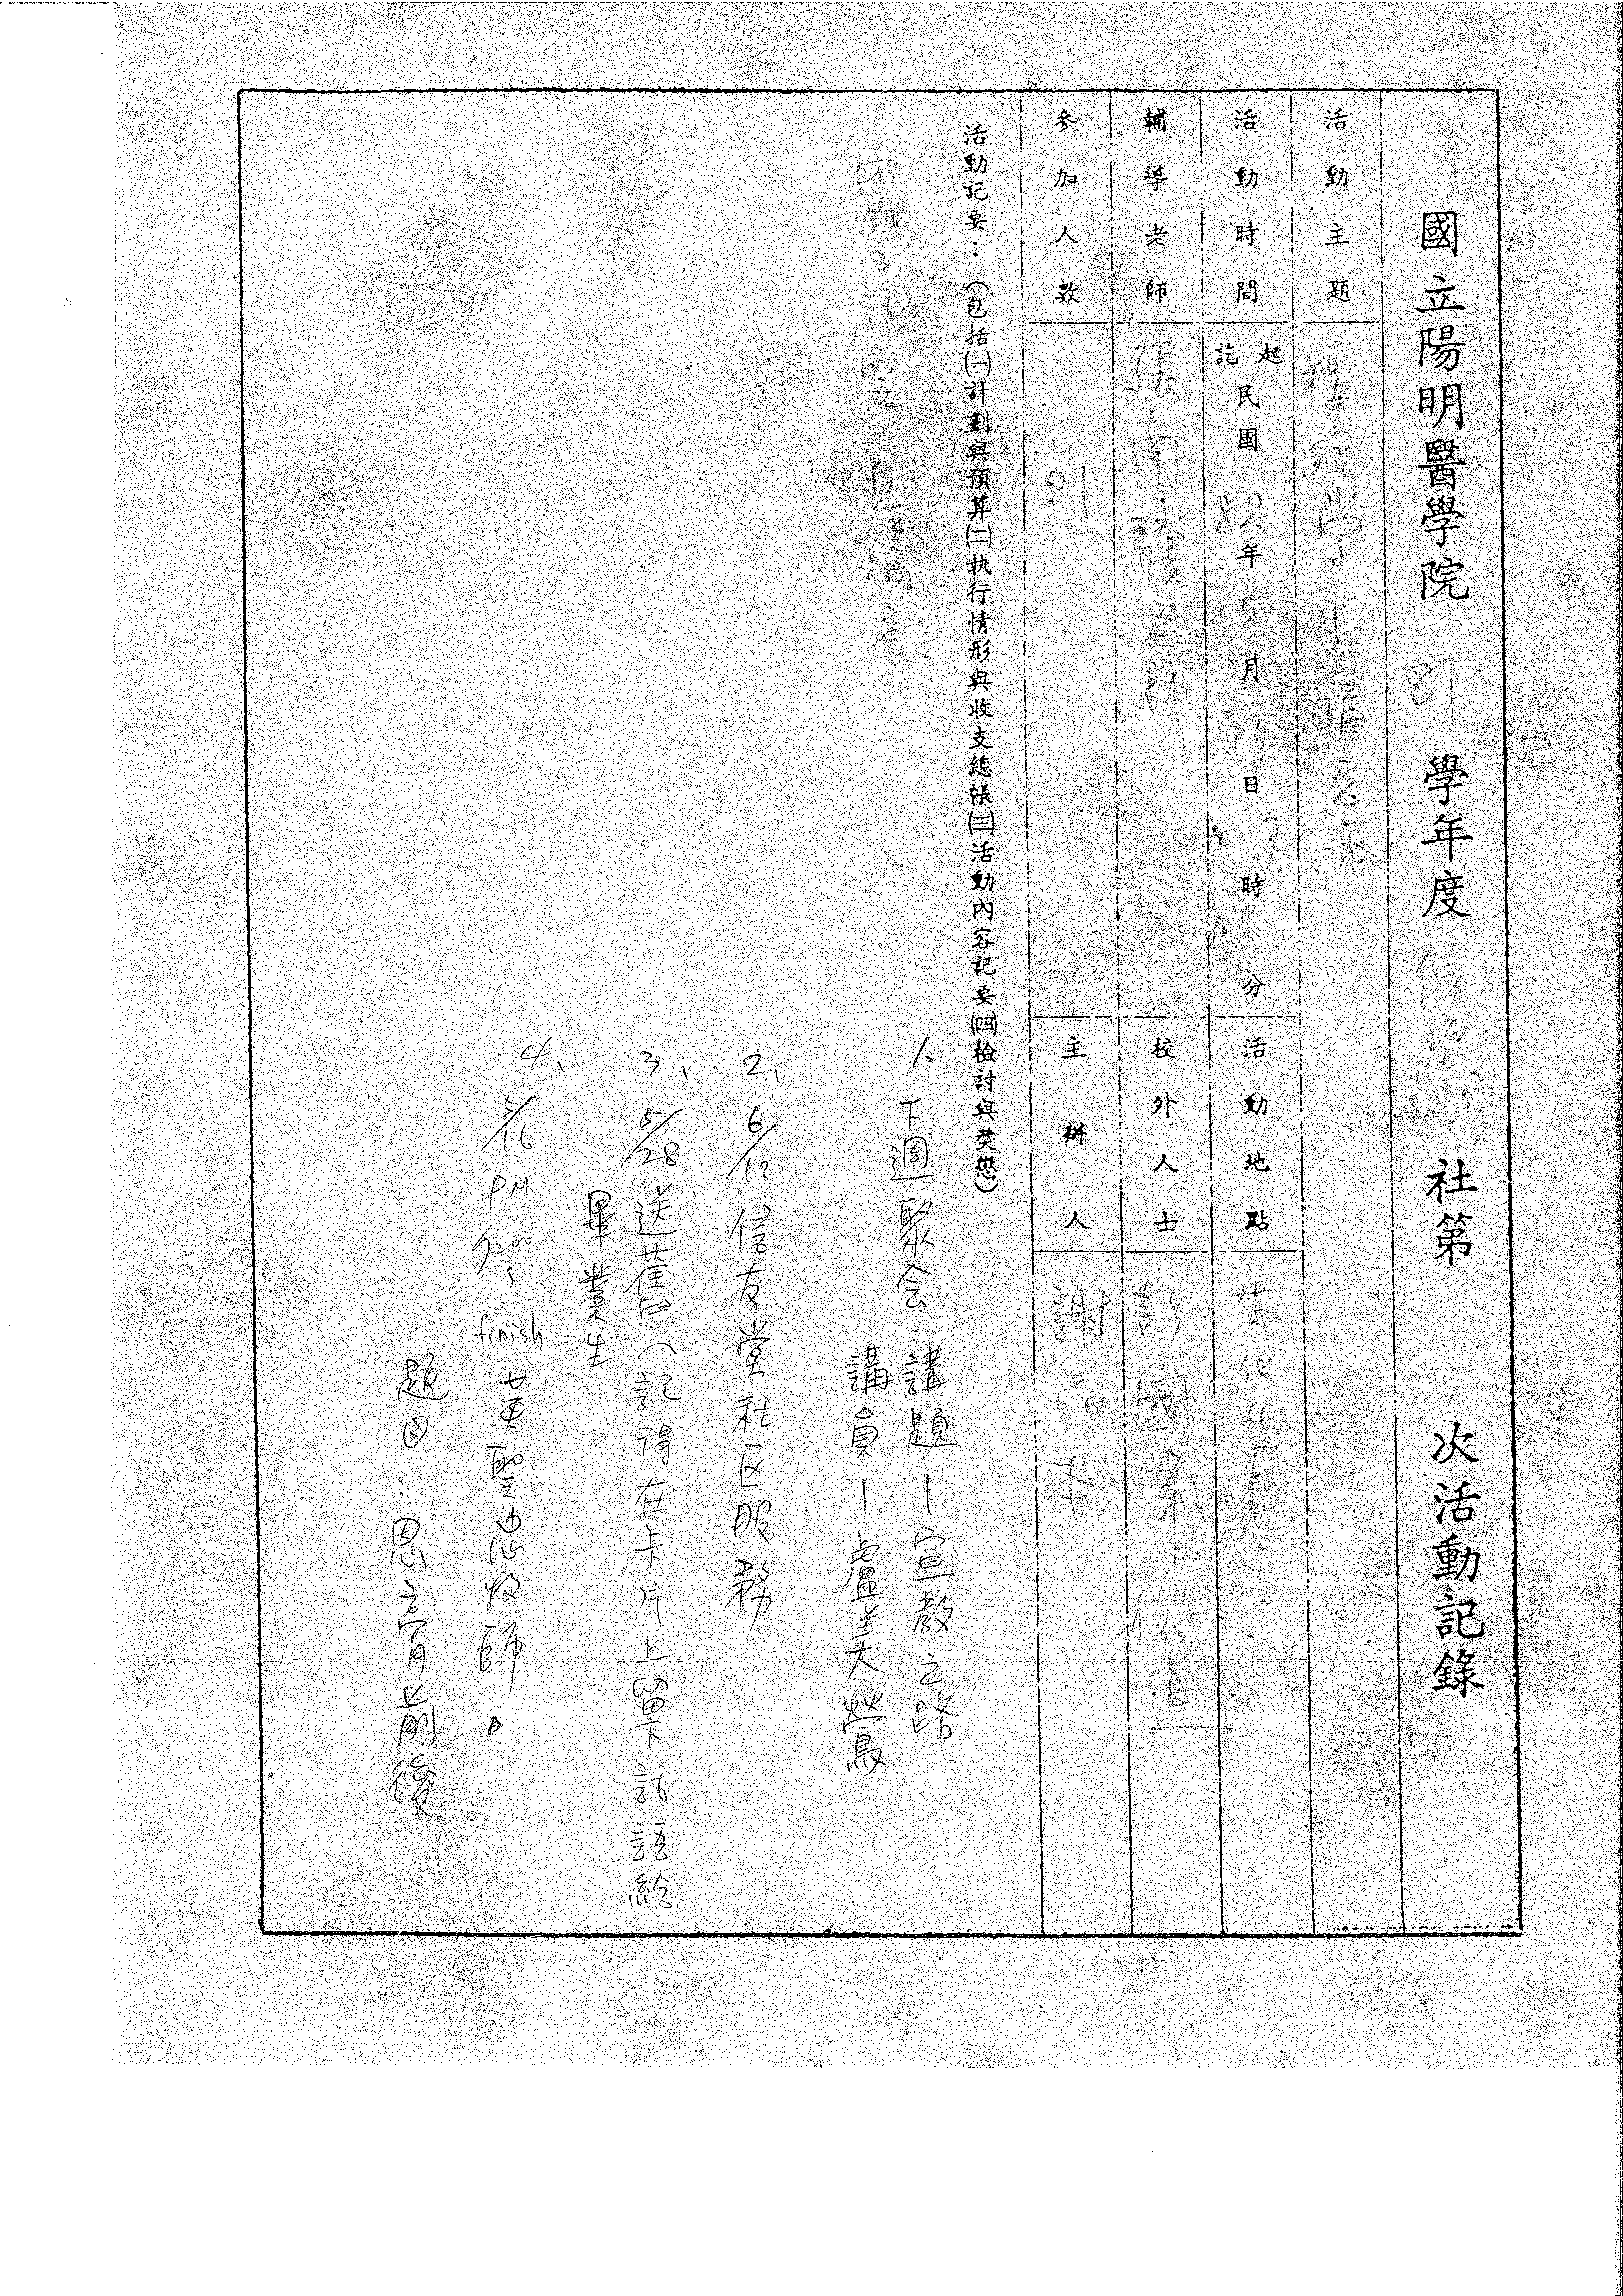 國立陽明醫學院 81 學年度 信望愛 社第 次活動記錄
活動主題 釋經學 — 福音派
活動時間 起訖 民國 82 年 5 月 14 日 7 8 時 30 分
活動地點 生化4F
輔導老師 張南驥老師
校外人士 彭國瑋 伝道
參加人數 21
主辦人 謝品本
活動記要：（包括㈠計劃與預算㈡執行情形與收支總帳㈢活動內容記要㈣檢討與獎懲）
內容記要：見講意
1、下週聚会：講題—宣教之路
講員—盧美鶯
2、6/12 信友堂社区服務
3、5/28 送舊：（記得在卡片上留下話語給
畢業生
4、5/16 PM 7:00~finish 黃聖志牧師。
題目：恩膏前後